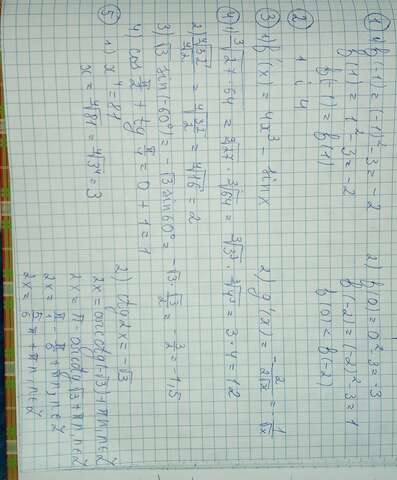 ① 1) f(-1) = (-1)² - 3 = -2
f(1) = 1² - 3 = -2
f(-1) = f(1)
2) f(0) = 0² - 3 = -3
f(-2) = (-2)² - 3 = 1
f(0) < f(-2)
② 1 и 4
③ 1) f'(x) = 4x³ - sin x
2) g'(x) = -2/2√x = -1/√x
④ 1) ³√27·64 = ³√27 · ³√64 = ³√3³ · ³√4³ = 3·4 = 12
2) ⁴√32/⁴√2 = ⁴√32/2 = ⁴√16 = 2
3) √3 sin(-60°) = -√3 sin 60° = -√3 · √3/2 = -3/2 = -1,5
4) cos π/2 + tg π/4 = 0 + 1 = 1
⑤ 1) x⁴ = 81
x = ⁴√81 = ⁴√3⁴ = 3
2) ctg 2x = -√3
2x = arcctg(-√3) + πn, n∈Z
2x = π - arcctg √3 + πn, n∈Z
2x = π - π/6 + πn, n∈Z
2x = 5/6 π + πn, n∈Z